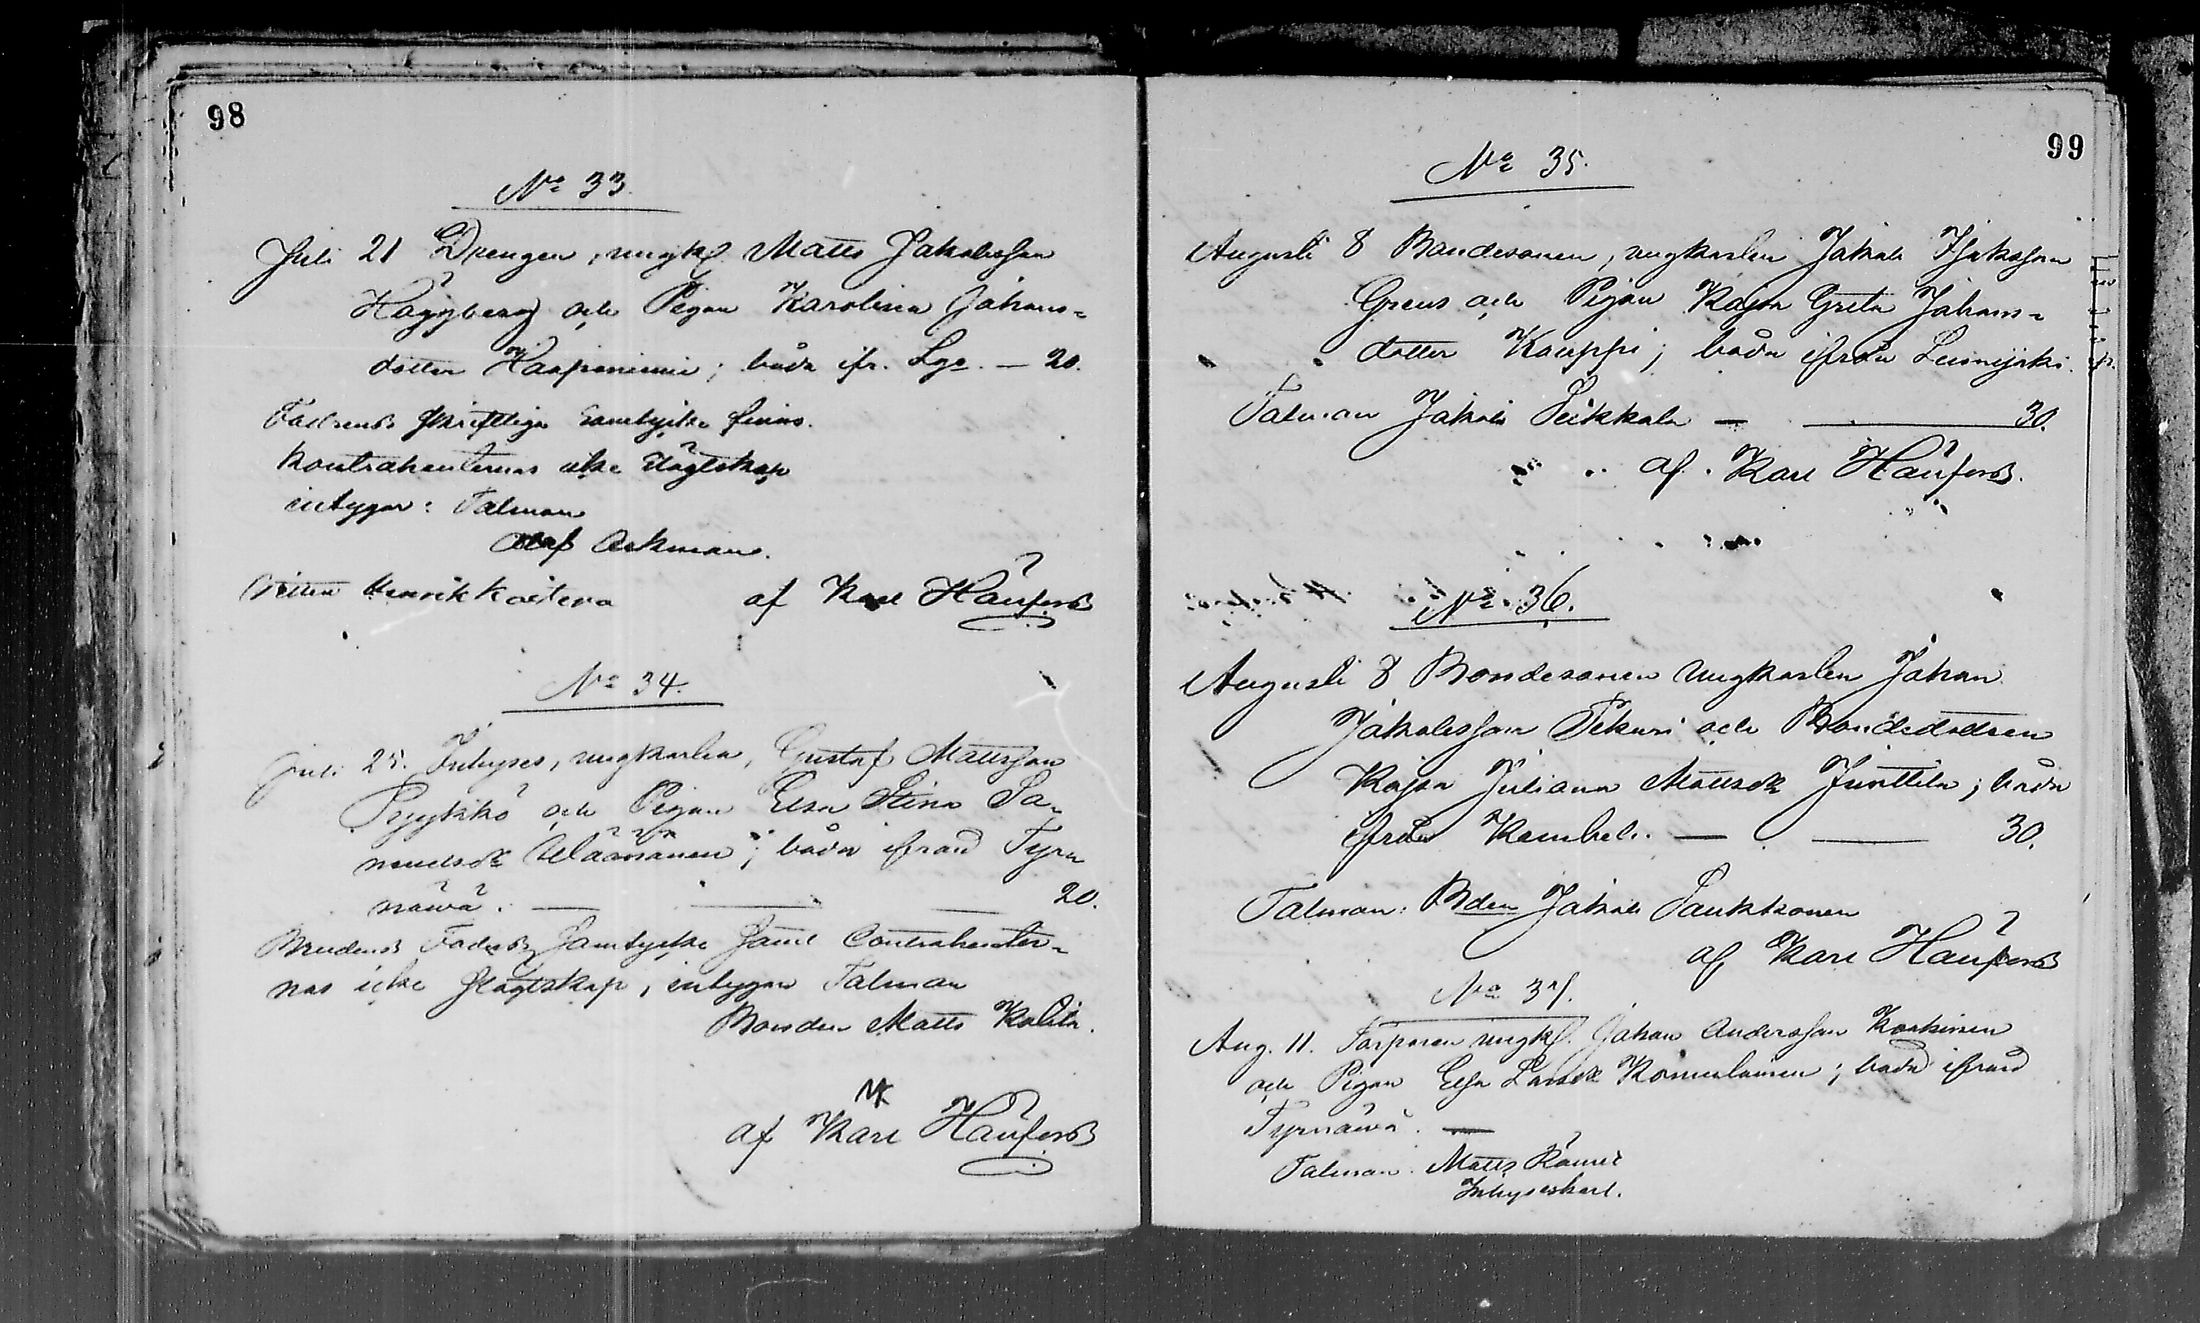 98
No 33.
Juli 21 Drengen, ungk. Matts Jakobsson
Häggberg och Pigan Karolina Johans-
dotter Haapaniemi; båda ifr. Lgo. — 20.
Fadrens skriftliga samtycke finns.
Kontrahenternas icke slägtskap
intygar: Talman
Olof Ackman.
Henrik Koistera
af Karl Hänfors
No 34.
Juli 25. Inhyses, ungkarlen, Gustaf Mattsson
Pyykkö och Pigan Elsa Stina Sa-
muelsdr Wäänänen; båda ifrån Tyr
näwä. — — — 20.
Brudens Faders Samtycke samt Contrahenter-
nas icke slägtskap, intygar Talman
Bonden Matts Kalila.
af Karl Hänfors
99
No 35.
Augusti 8 Bondesonen, ungkarlen Jakob Isaksson
Greus och Pigan Kajsa Greta Johans-
dotter Kauppi; båda ifrån Lumijoki.
Talman Jakob Pikkala — — 30.
af Karl Hänfors.
No 36.
Augusti 8 Bondesonen ungkarlen Johan
Jakobsson Pekuri och Bondedottren
Kajsa Juliana Mattsdr Junttila; båda
ifrån Kembele. — — 30.
Talman: Bden Jakob Paukkonen
af Karl Hänfors
No 37.
Aug. 11. Torparen ungk. Johan Andersson Koskinen
och Pigan Elsa Larsdr Komulainen; båda ifrån
Tyrnäwä. —
Talman. Matts Rämet
Inhyseskarl.